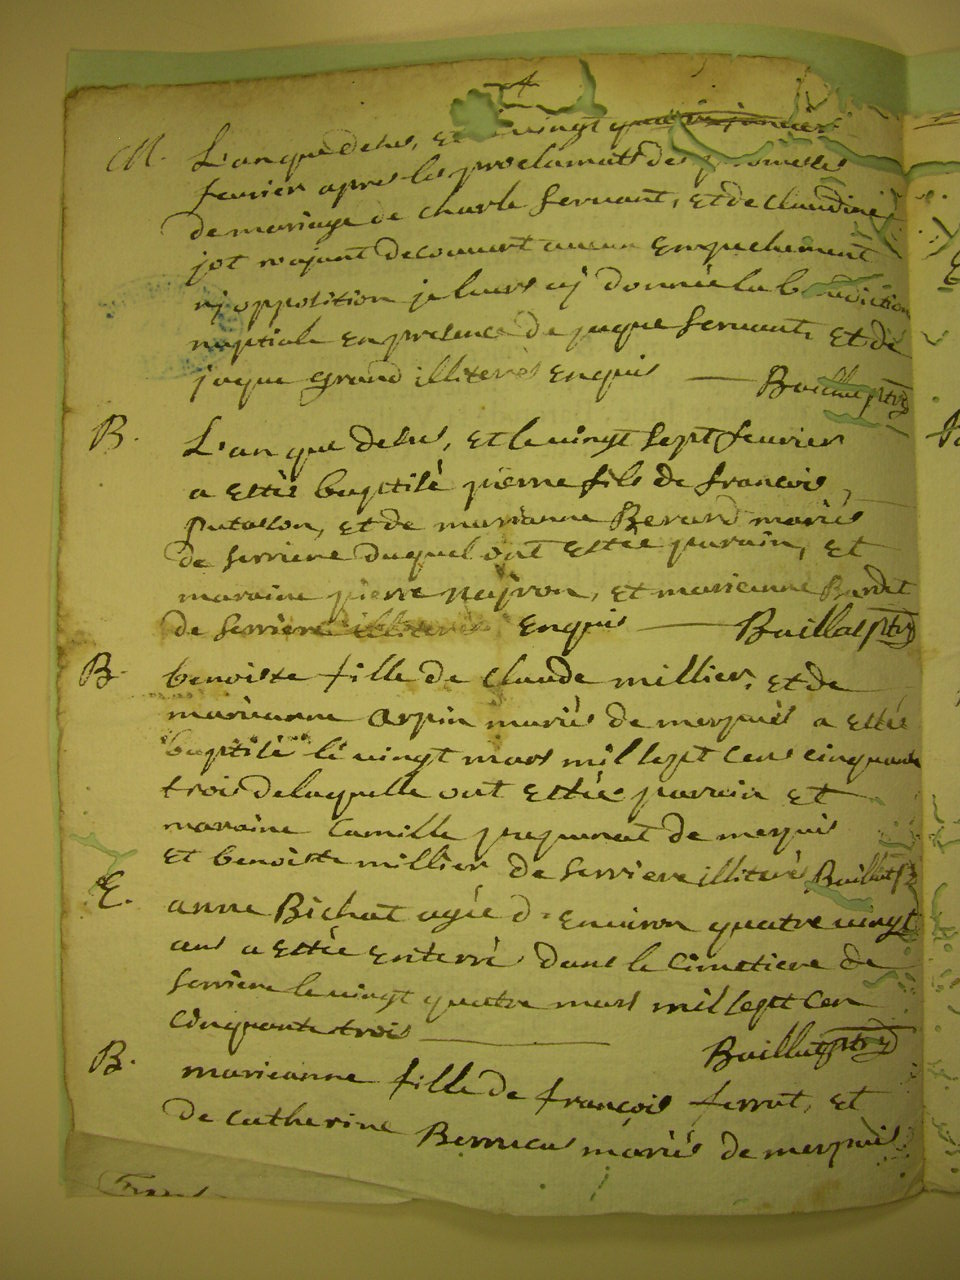 4
M. L'an que desus, et vingt
fevrier apres les proclamats des promesses
de mariage de charle servant, et de claudine
jot n'ayant decouvert aucun empechement
nj opposition je leurs aj donnée la benediction
nuptiale en presence de jaque servant, et de
jaque grand illiterés enquis Baillat ptre
B. L'an que desus, et le vingt sept fevrier
a estés baptisé pierre fils de francois
putasson, et de marianne Berard mariés
de serriere duquel ont estée parain, et
maraine pierre neyron, et marieanne Bardet
de serriere illiterés enquis Baillat ptre
B. benoiste fille de claude millier, et de
marieanne arpin mariés de merpuis a estée
baptisé le vingt mars mil sept cens cinquante
trois de laquelle ont estée parain et
maraine camille puquenat de merpuis
et benoiste millier de serriere illiterés Baillat p
E. anne Bichat agée d'environ quatre vingt
ans a estée enterré dans le cimetiere de
serriere le vingt quatre mars mil sept cen
cinquante trois Baillat ptre
B. marieanne fille de françois ferrat, et
de catherine mariés de merpuis